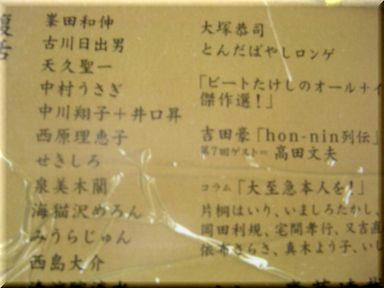 復活
峯田和伸
古川日出男
天久聖一
中村うさぎ
中川翔子＋井口昇
西原理恵子
せきしろ
泉美木蘭
海猫沢めろん
みうらじゅん
西島大介
大塚恭司
とんだばやしロンゲ
「ビートたけしのオールナイ
傑作選！」
吉田豪「hon-nin列伝」
第7回ゲスト＝高田文夫
コラム「大至急本人を！」
片桐はいり、いましろたかし、
岡田利規、宅間孝行、又吉直
依布さらさ、真木よう子、い